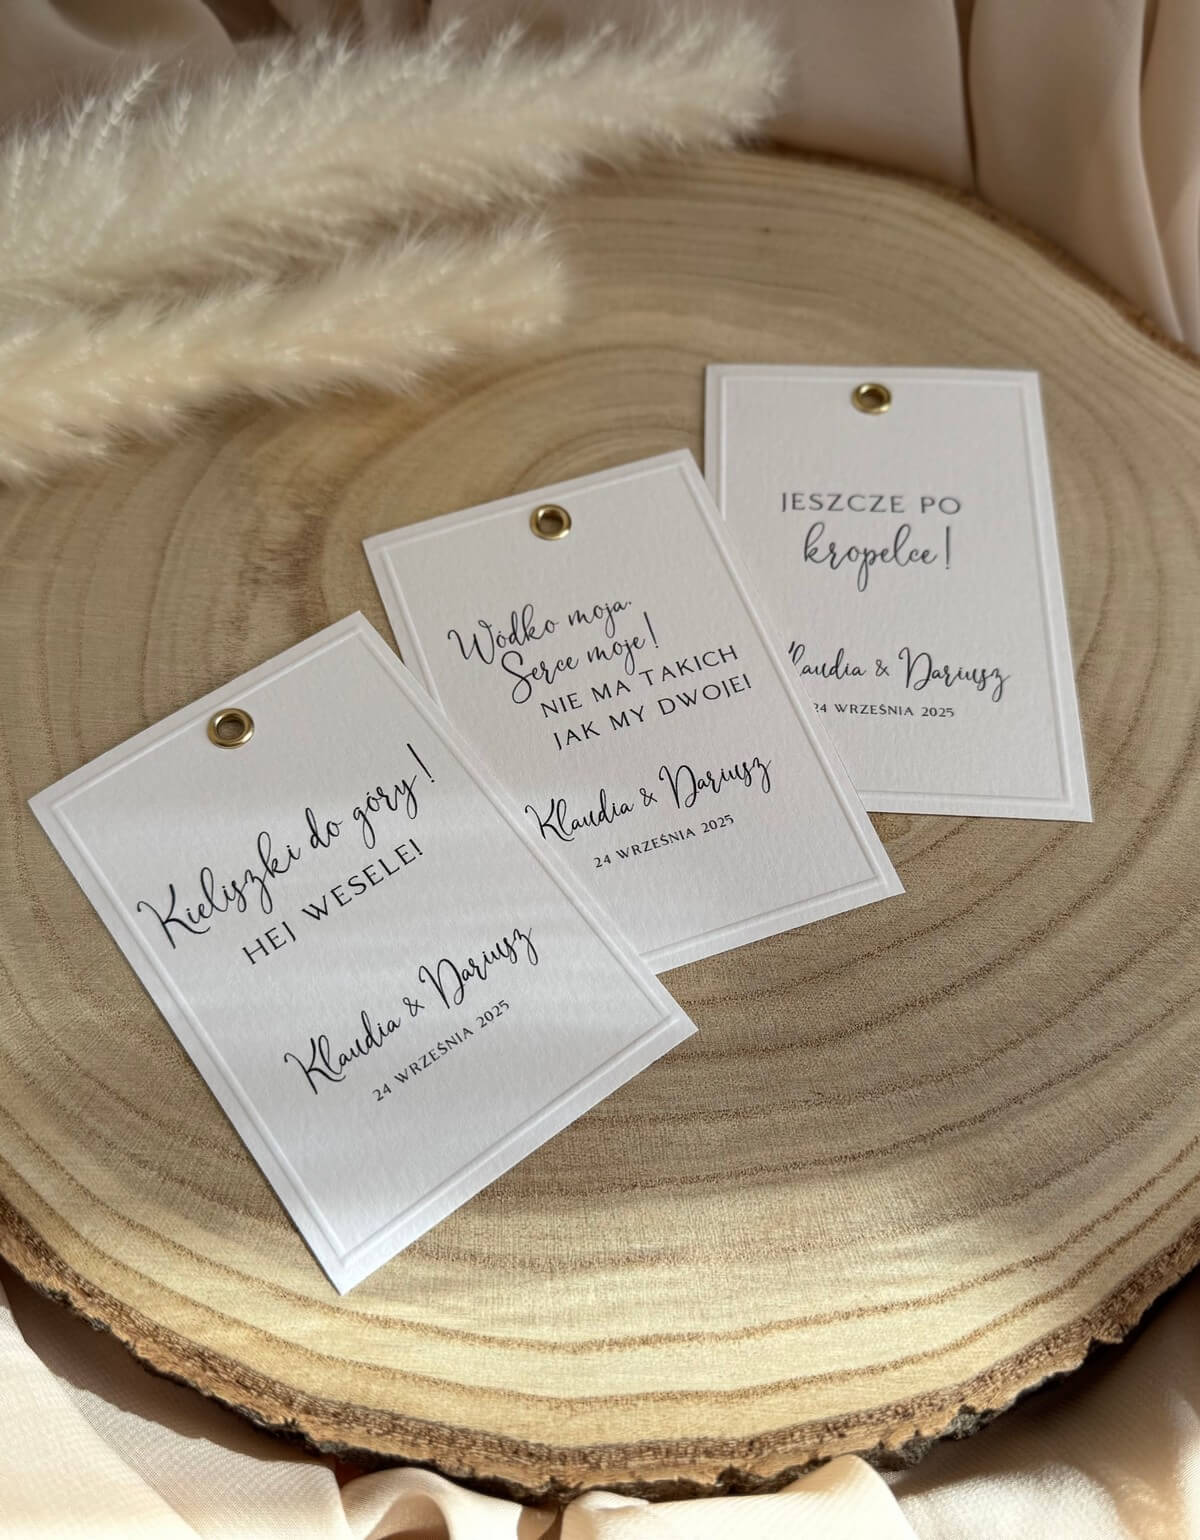 Kieliszki do góry!
HEJ WESELE!
Klaudia & Dariusz
24 WRZEŚNIA 2025
Wódko moja.
Serce moje!
NIE MA TAKICH
JAK MY DWOJE!
Klaudia & Dariusz
24 WRZEŚNIA 2025
JESZCZE PO
kropelce!
laudia & Dariusz
24 WRZEŚNIA 2025